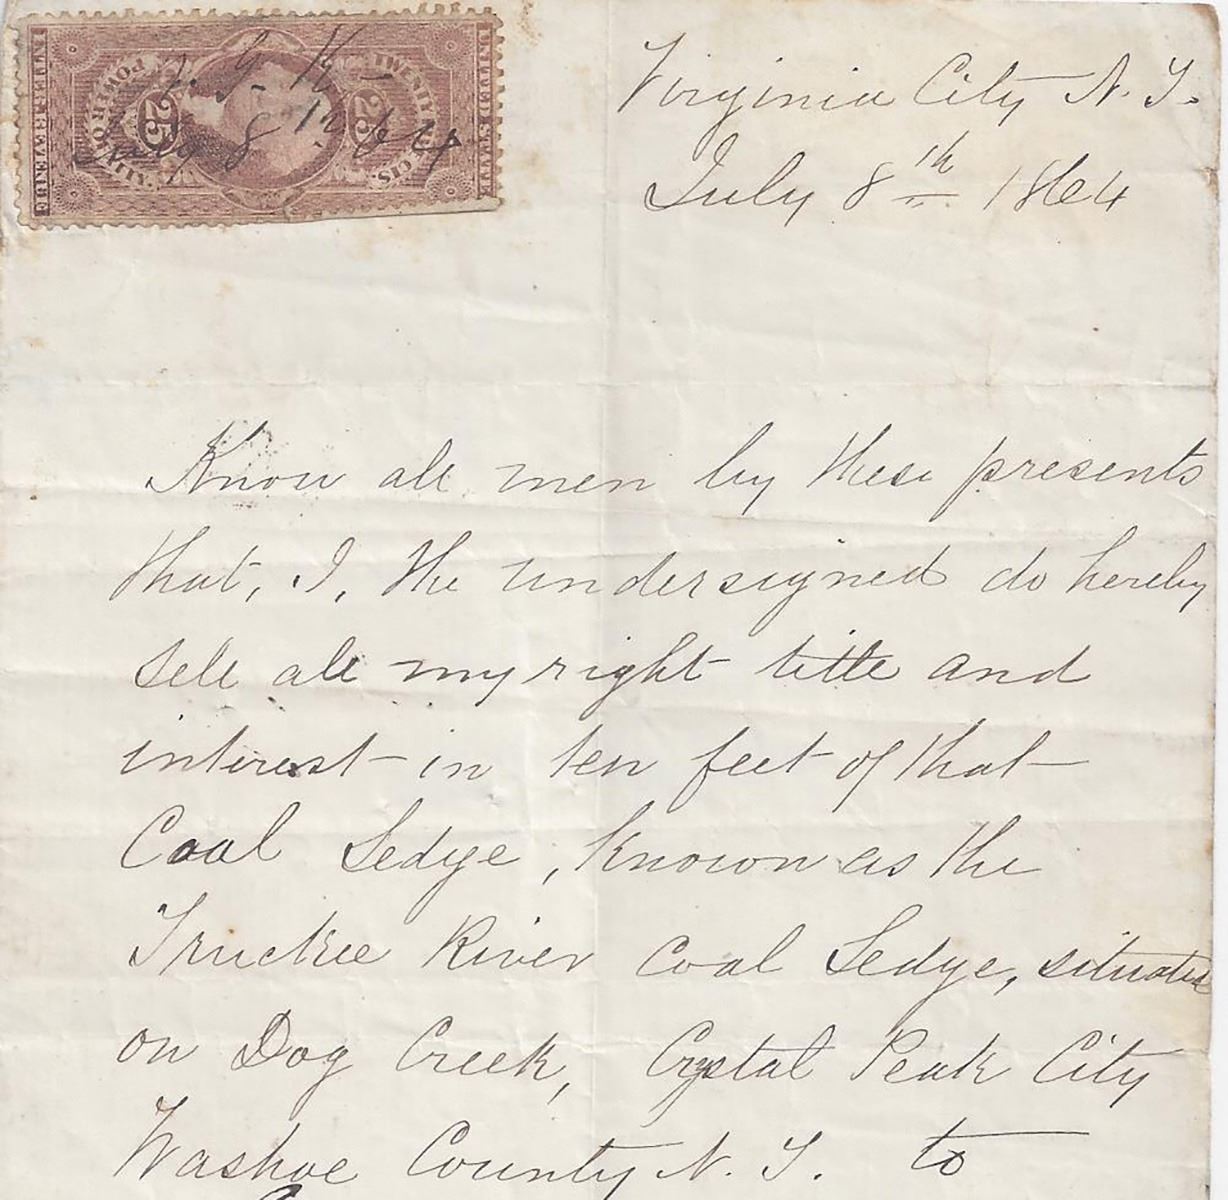 Virginia City N. T.
July 8th 1864
25
25
POWER OF ATT'Y.
CTS.
July 8th 64
Know all men by these presents
that, I, the undersigned do hereby
sell all my right title and
interest in ten feet of that
Coal Ledge, known as the
Truckee River Coal Ledge, situated
on Dog Creek, Crystal Peak City
Washoe County N. T. to